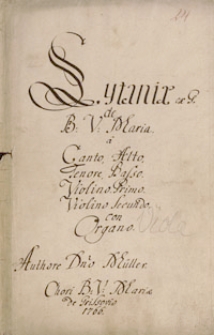 Lytaniæ ex G.
de
B: V: Maria.
à
Canto, Alto,
Tenore, Basso,
Violino Primo,
Violino Secundo,
con
Organo.
Authore Dno Müller.
Chori B: V: Mariæ
1766.